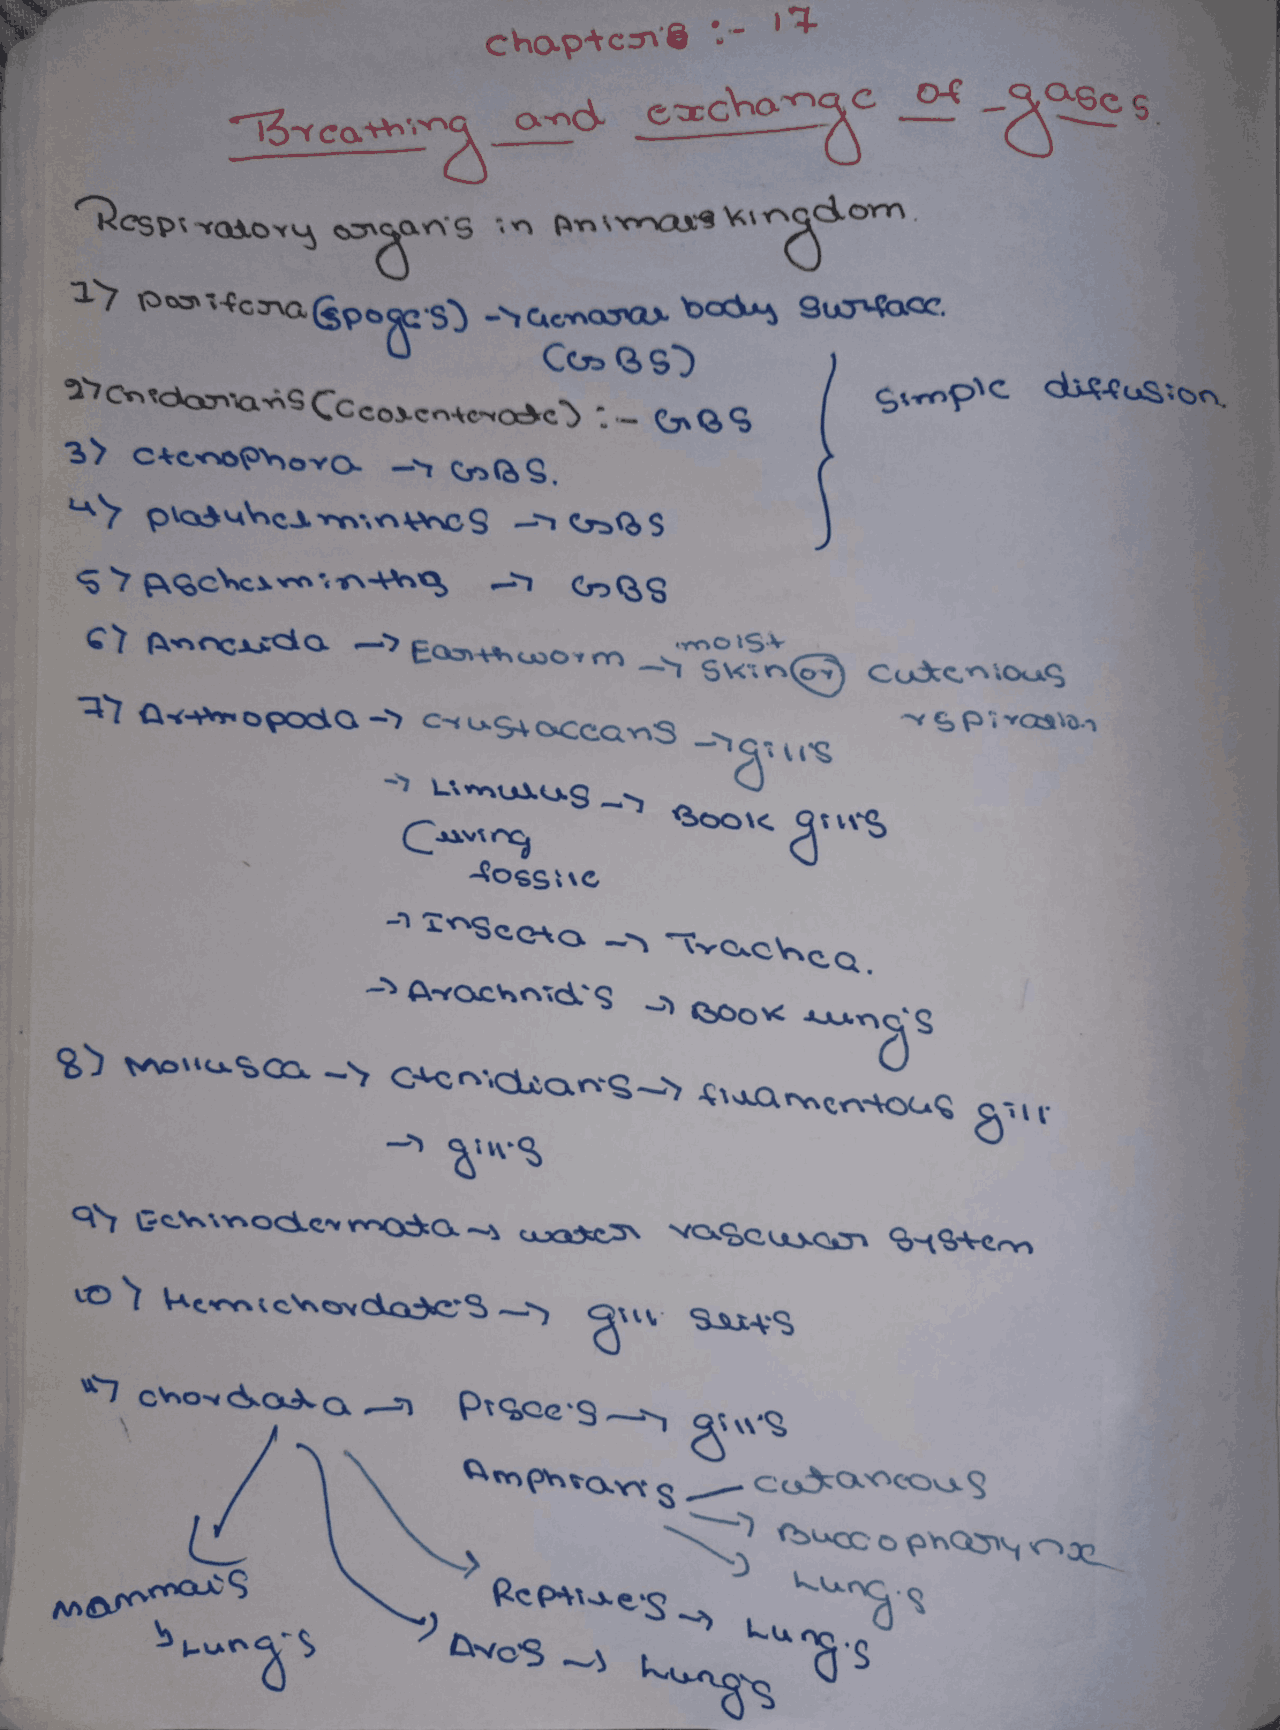 chapter's :- 17
Breathing and exchange of gases.
Respiratory organ's in Animals kingdom.
1) porifera (spoge's) → General body surface.
(GBS)
2) cnidarian's (Ccolenterate) :- GBS
simple diffusion.
3) ctenophora → GBS.
4) platyhelminthes → GBS
5) Aschelminths → GBS
6) Annelida → Earthworm → moist skin or cutenious
rspiration
7) Arthropoda → crustaceans → gill's
→ Limulus → Book gill's
(Living
fossile
→ Insecta → Trachea.
→ Arachnid's → Book lung's
8) Mollusca → ctenidian's → filamentous gill
→ gill's
9) Echinodermata → water vascular system
10) Hemichordate's → gill slit's
11) chordata → Pisce's → gill's
Amphian's — cutaneous
→ Buccopharynx
→ Lung's
Mammal's
↳ Lung's
Reptile's → Lung's
Ave's → Lung's